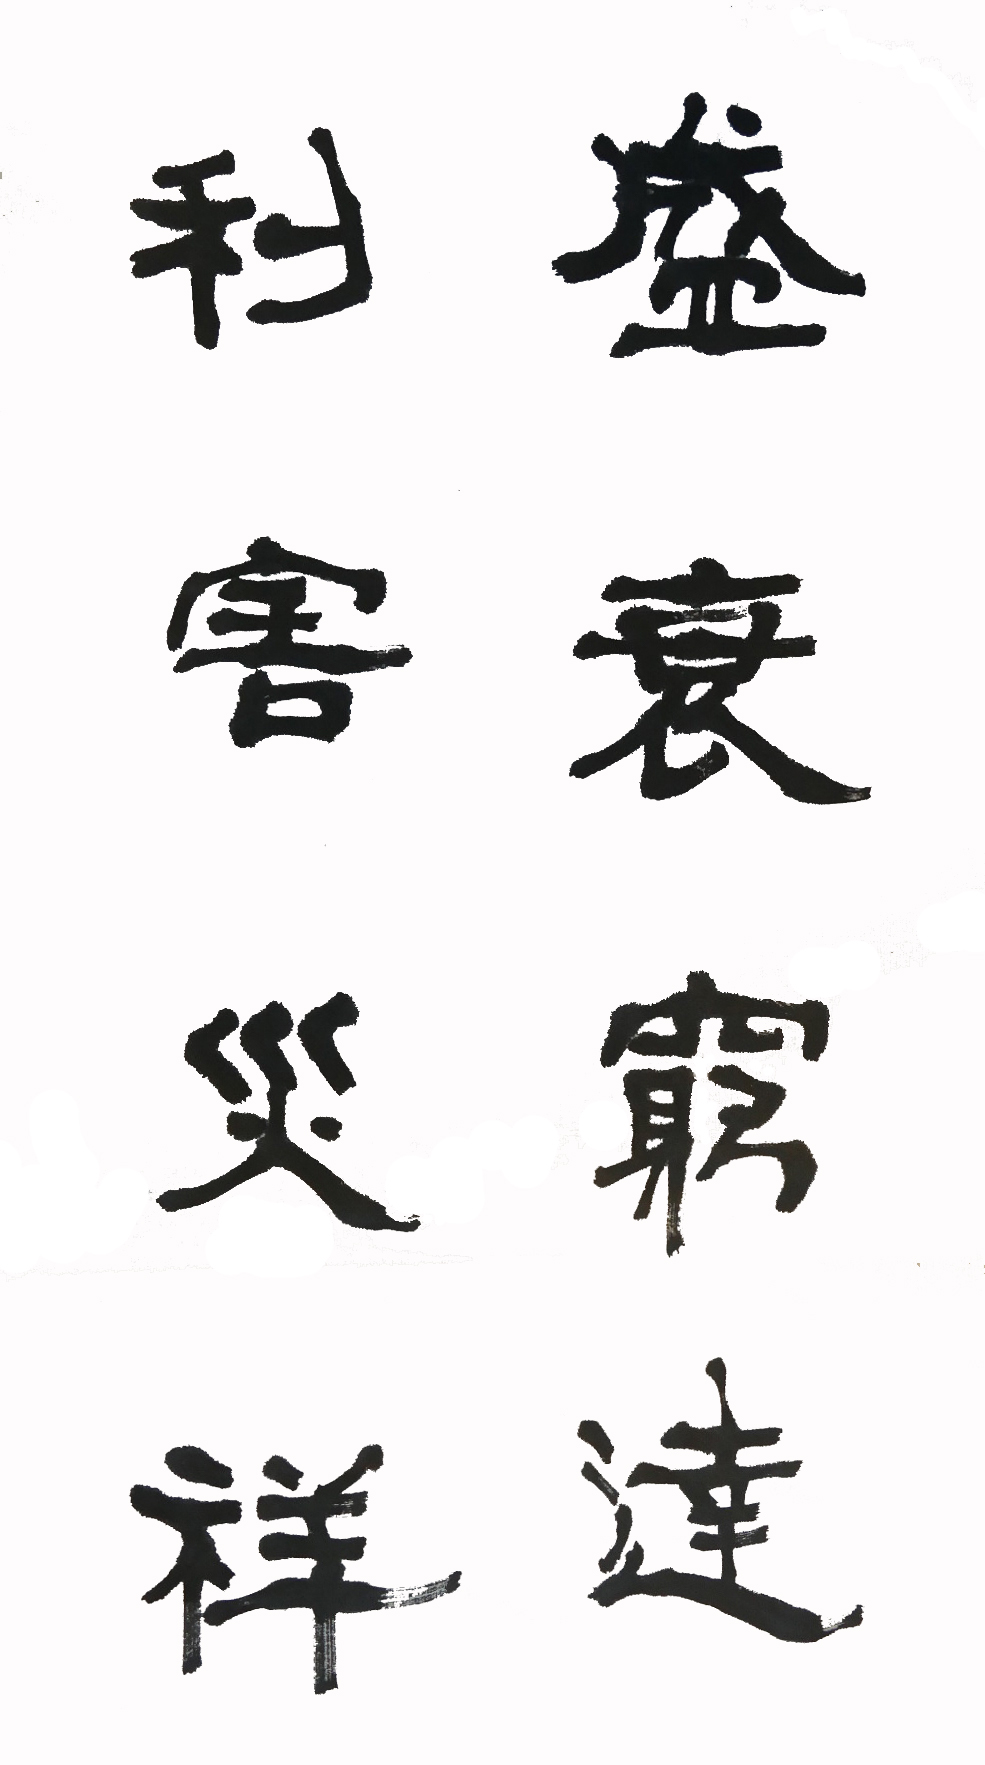 盛衰窮達
利害災祥